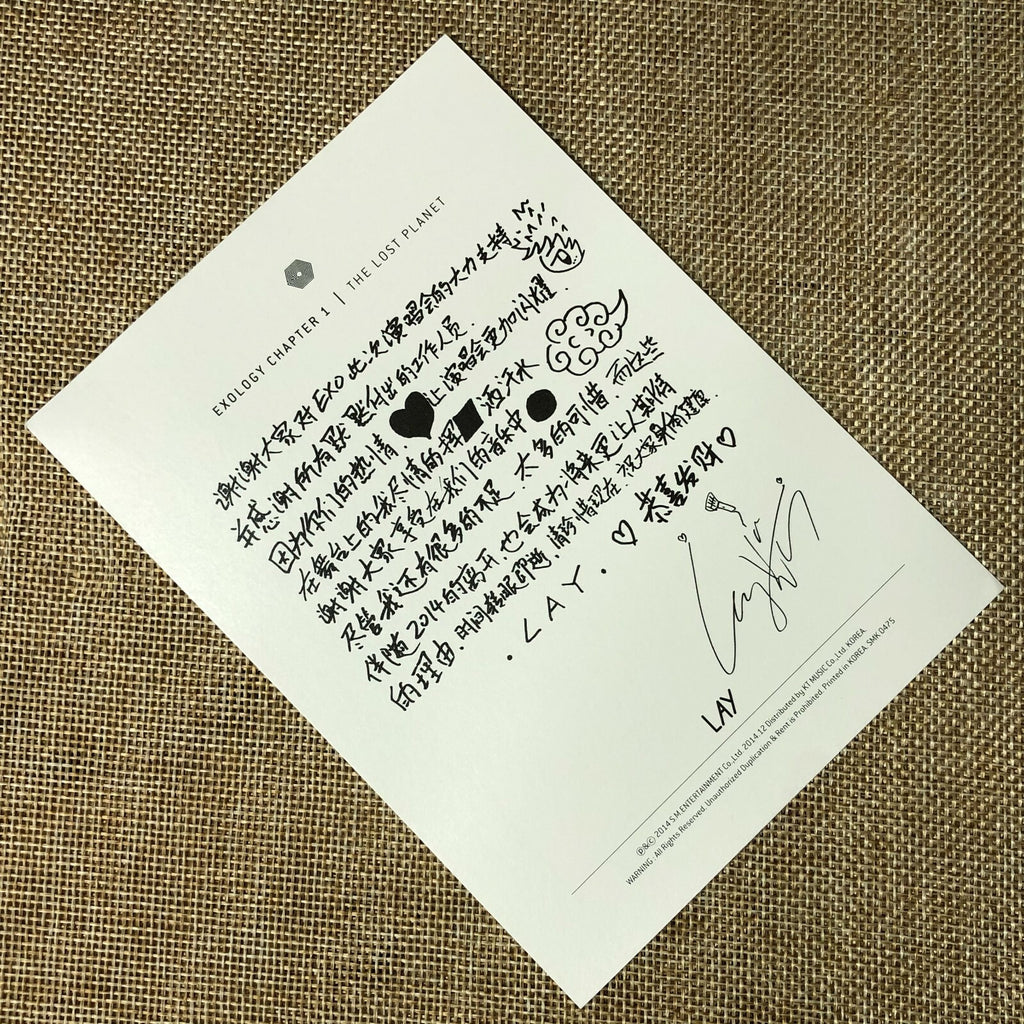 EXOLOGY CHAPTER 1 | THE LOST PLANET
谢谢大家对EXO此次演唱会的大力支持
并感谢所有默默付出的工作人员.
因为你们的热情让演唱会更加闪耀.
在舞台上的我尽情的挥洒汗水
谢谢大家享受在我们的音乐中
尽管我还有很多的不足.太多的可惜.而这些
伴随2014的离开.也会成为将来更让人期待
的理由.时间转眼即逝.请珍惜现在.祝大家身体健康.
恭喜发财
·LAY·
LAY
℗&© 2014 S.M.ENTERTAINMENT Co., Ltd. 2014.12 Distributed by KT MUSIC Co., Ltd. KOREA.
WARNING : All Rights Reserved. Unauthorized Duplication & Rent is Prohibited. Printed in KOREA. SMK 0475